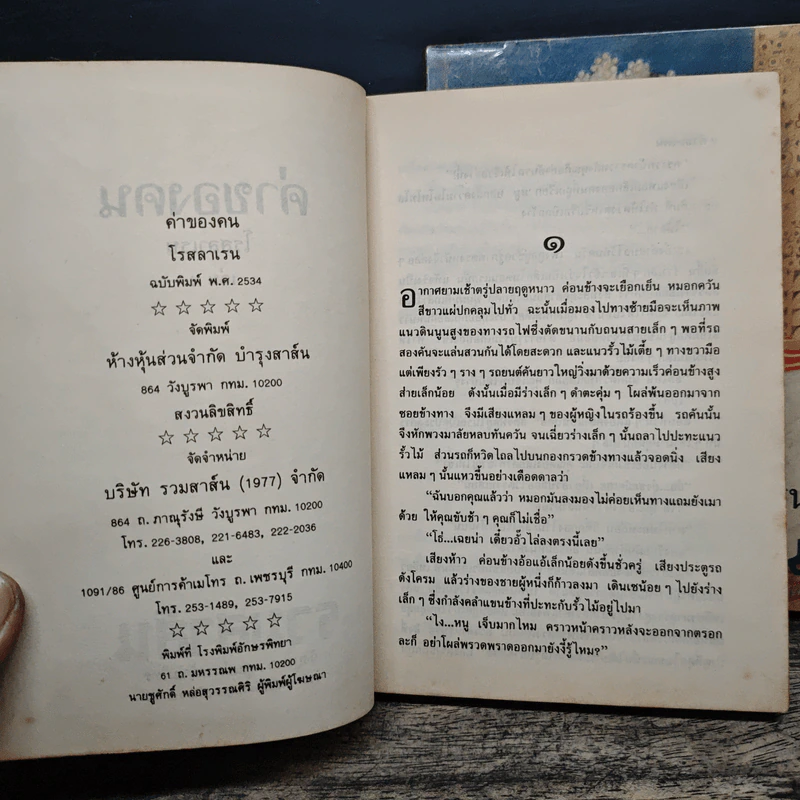 ค่าของคน
โรสลาเรน
ฉบับพิมพ์ พ.ศ. 2534
☆ ☆ ☆ ☆ ☆
จัดพิมพ์
ห้างหุ้นส่วนจำกัด บำรุงสาส์น
864 วังบูรพา กทม. 10200
สงวนลิขสิทธิ์
☆ ☆ ☆ ☆ ☆
จัดจำหน่าย
บริษัท รวมสาส์น (1977) จำกัด
864 ถ. ภาณุรังษี วังบูรพา กทม. 10200
โทร. 226-3808, 221-6483, 222-2036
และ
1091/86 ศูนย์การค้าเมโทร ถ. เพชรบุรี กทม. 10400
โทร. 253-1489, 253-7915
☆ ☆ ☆ ☆ ☆
พิมพ์ที่ โรงพิมพ์อักษรพิทยา
61 ถ. มหรรณพ กทม. 10200
นายชูศักดิ์ หล่อสุวรรณศิริ ผู้พิมพ์ผู้โฆษณา
๑
อากาศยามเช้าตรู่ปลายฤดูหนาว ค่อนข้างจะเยือกเย็น หมอกควัน
สีขาวแผ่ปกคลุมไปทั่ว ฉะนั้นเมื่อมองไปทางซ้ายมือจะเห็นภาพ
แนวดินนูนสูงของทางรถไฟซึ่งตัดขนานกับถนนสายเล็ก ๆ พอที่รถ
สองคันจะแล่นสวนกันได้โดยสะดวก และแนวรั้วไม้เตี้ย ๆ ทางขวามือ
แต่เพียงรัว ๆ ราง ๆ รถยนต์คันยาวใหญ่วิ่งมาด้วยความเร็วค่อนข้างสูง
ส่ายเล็กน้อย ดังนั้นเมื่อมีร่างเล็ก ๆ ดำตะคุ่ม ๆ โผล่พ้นออกมาจาก
ซอยข้างทาง จึงมีเสียงแหลม ๆ ของผู้หญิงในรถร้องขึ้น รถคันนั้น
จึงหักพวงมาลัยหลบทันควัน จนเฉี่ยวร่างเล็ก ๆ นั้นถลาไปปะทะแนว
รั้วไม้ ส่วนรถก็หวิดไถลไปบนกองกรวดข้างทางแล้วจอดนิ่ง เสียง
แหลม ๆ นั้นแหวขึ้นอย่างเดือดดาลว่า
“ฉันบอกคุณแล้วว่า หมอกมันลงมองไม่ค่อยเห็นทางแถมยังเมา
ด้วย ให้คุณขับช้า ๆ คุณก็ไม่เชื่อ”
“โธ่...เฉยน่า เดี๋ยวอั๊วไล่ลงตรงนี้เลย”
เสียงห้าว ค่อนข้างอ้อแอ้เล็กน้อยดังขึ้นชั่วครู่ เสียงประตูรถ
ดังโครม แล้วร่างของชายผู้หนึ่งก็ก้าวลงมา เดินเซน้อย ๆ ไปยังร่าง
เล็ก ๆ ซึ่งกำลังคลำแขนข้างที่ปะทะกับรั้วไม้อยู่ไปมา
“ไง...หนู เจ็บมากไหม คราวหน้าคราวหลังจะออกจากตรอก
ละก็ อย่าโผล่พรวดพราดออกมายังงี้รู้ไหม?”